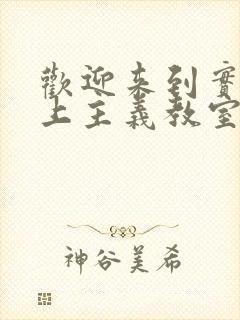 歡迎來到實
上主義教室
神谷美希